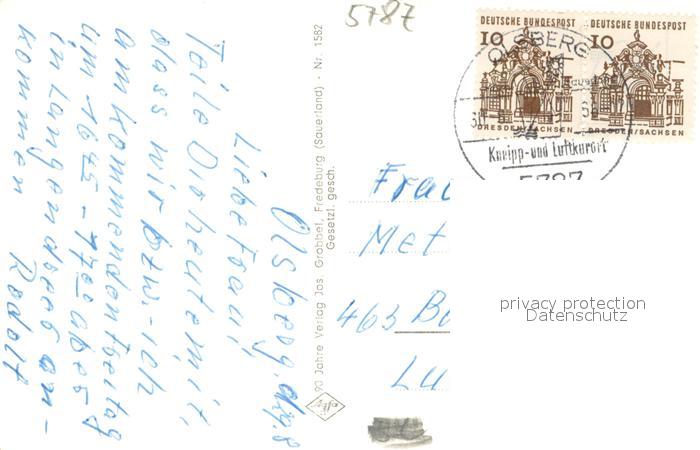 5787
DEUTSCHE BUNDESPOST
10
DRESDEN/SACHSEN
DEUTSCHE BUNDESPOST
10
DRESDEN/SACHSEN
OLSBERG
Kneipp-und Luftkurort
5787
Olsberg,
Liebe Frau,
Teile Dir heute mit,
dass wir bzw. - ich
am kommenden Freitag
um - 16 45 - 17 00
in Langendreer an-
kommen
Rudolf
90 Jahre Verlag Jos. Grobbel, Fredeburg (Sauerland) - Nr. 1582
Gesetzl. gesch.
Agfa
Frau
Met
463 Bo
Lu
privacy protection
Datenschutz